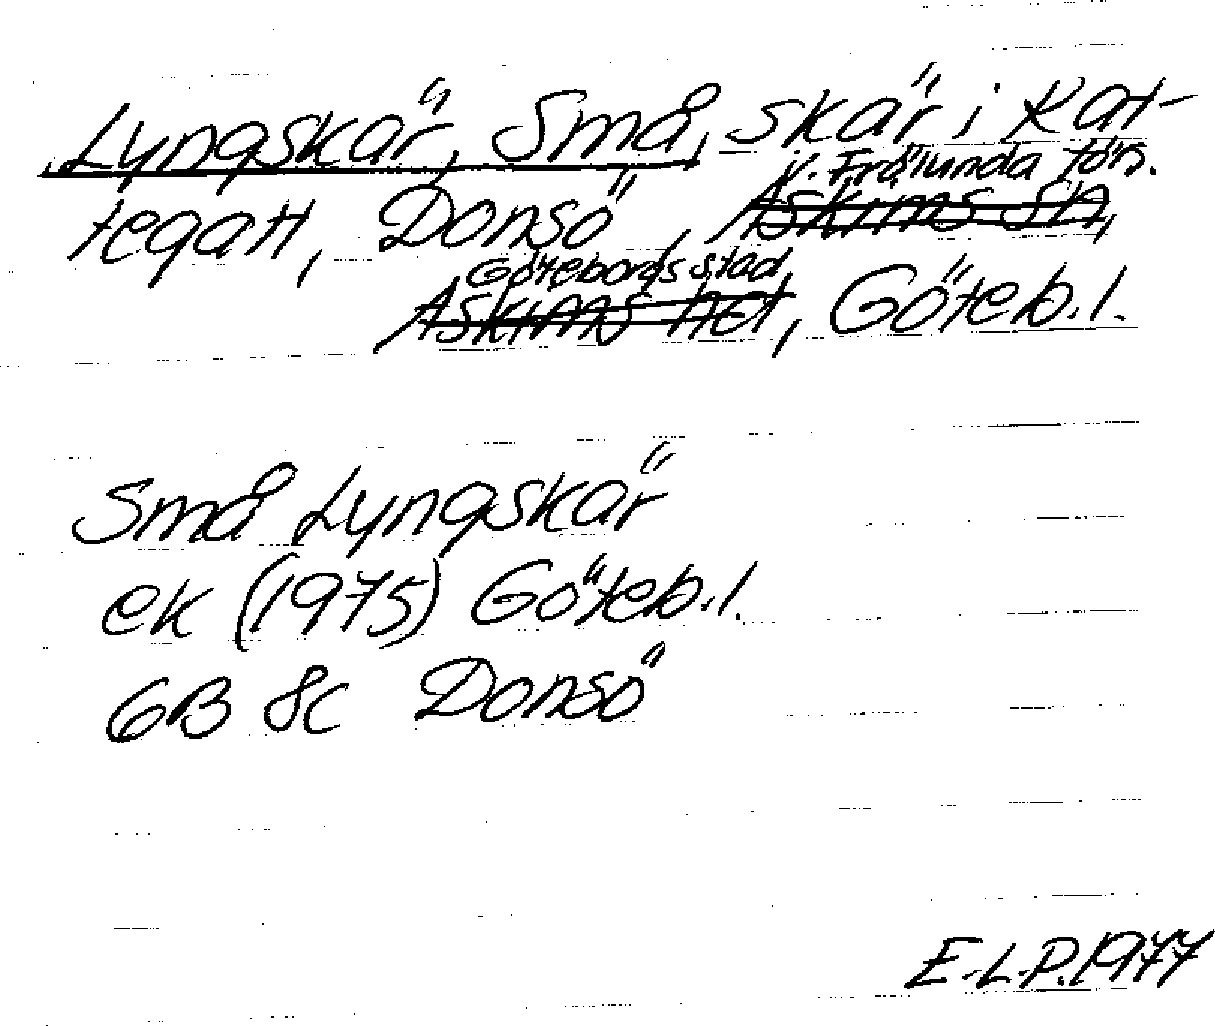 Lyngskär, Små, skär i Kat-
V. Frölundaförs.
tegatt, Donsö, Askims sn,
Göteborgs stad,
Askims hd, Göteb.l.
Små Lyngskär
ek (1975) Göteb.l.
6B 8c Donsö
E.L.P. 1977